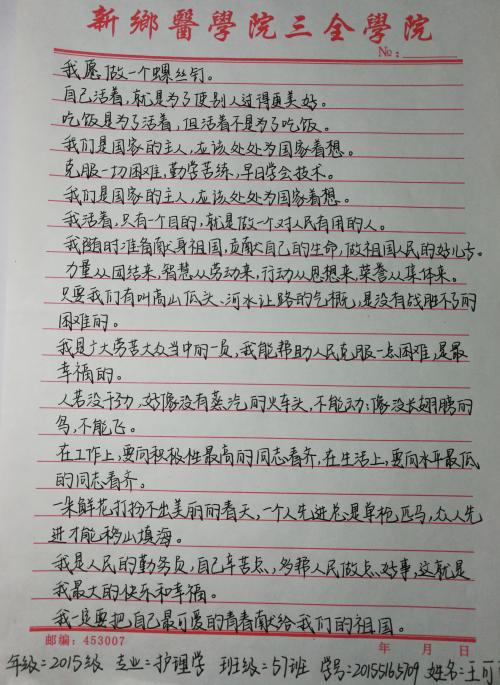 新鄉醫學院三全學院
№:
我愿做一个螺丝钉。
自己活着,就是为了使别人过得更美好。
吃饭是为了活着,但活着不是为了吃饭。
我们是国家的主人,应该处处为国家着想。
克服一切困难,勤学苦练,早日学会技术。
我们是国家的主人,应该处处为国家着想。
我活着,只有一个目的,就是做一个对人民有用的人。
我随时准备献身祖国,贡献自己的生命,做祖国人民的好儿女。
力量从团结来,智慧从劳动来,行动从思想来,荣誉从集体来。
只要我们有叫高山低头、河水让路的气概,是没有战胜不了的
困难的。
我是广大劳苦大众当中的一员,我能帮助人民克服一点困难,是最
幸福的。
人若没干劲,好像没有蒸汽的火车头,不能动;像没长翅膀的
鸟,不能飞。
在工作上,要向积极性最高的同志看齐,在生活上,要向水平最低
的同志看齐。
一朵鲜花打扮不出美丽的春天,一个人先进总是单枪匹马,众人先
进才能移山填海。
我是人民的勤务员,自己辛苦点,多帮人民做点好事,这就是
我最大的快乐和幸福。
我一定要把自己最可爱的青春献给我们的祖国。
邮编:453007 年 月 日
年级:2015级 专业:护理学 班级:57班 学号:20155165709 姓名:王可